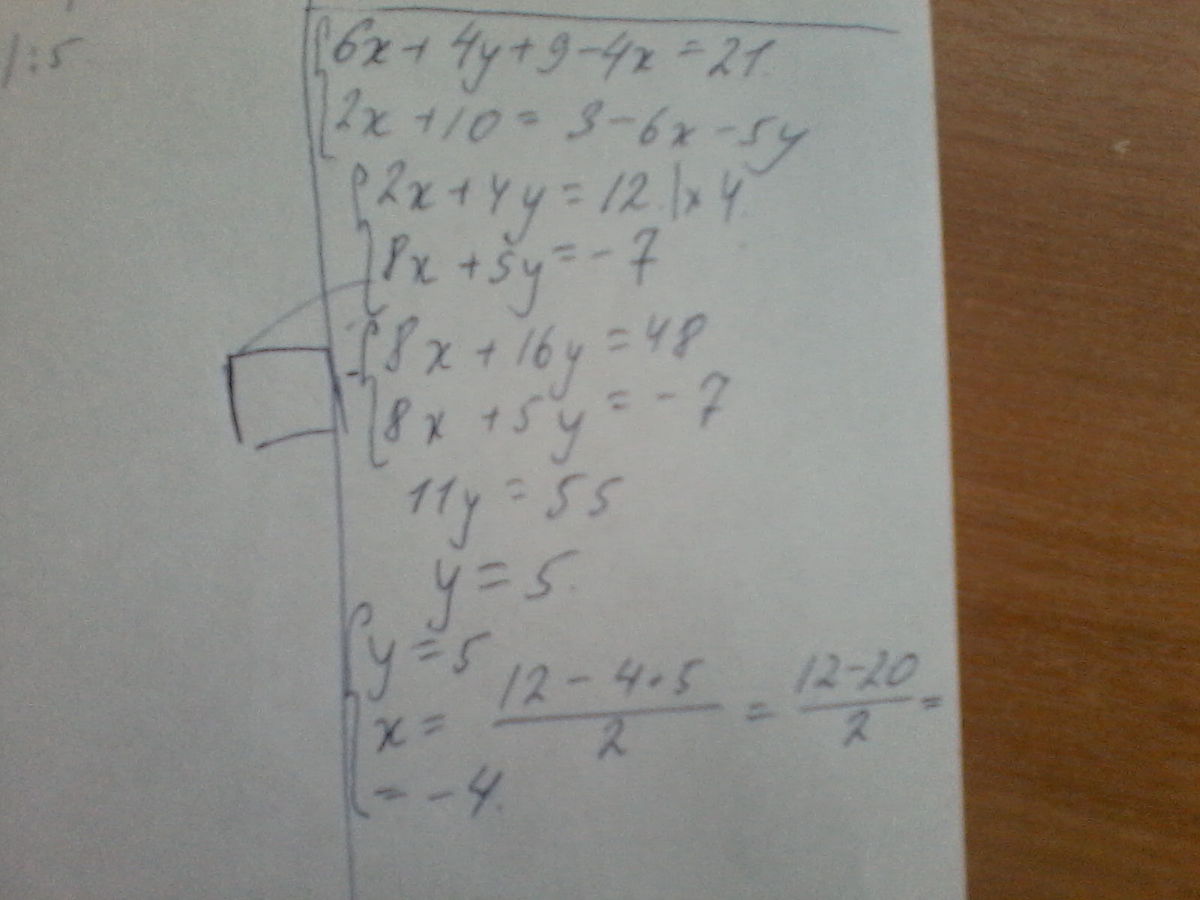 1:5
6x+4y+9-4x=21.
2x+10=3-6x-5y
2x+4y=12.|x4.
8x+5y=-7
8x+16y=48
8x+5y=-7
11y=55
y=5.
y=5
x= 12-4·5/2 = 12-20/2 =
= -4.